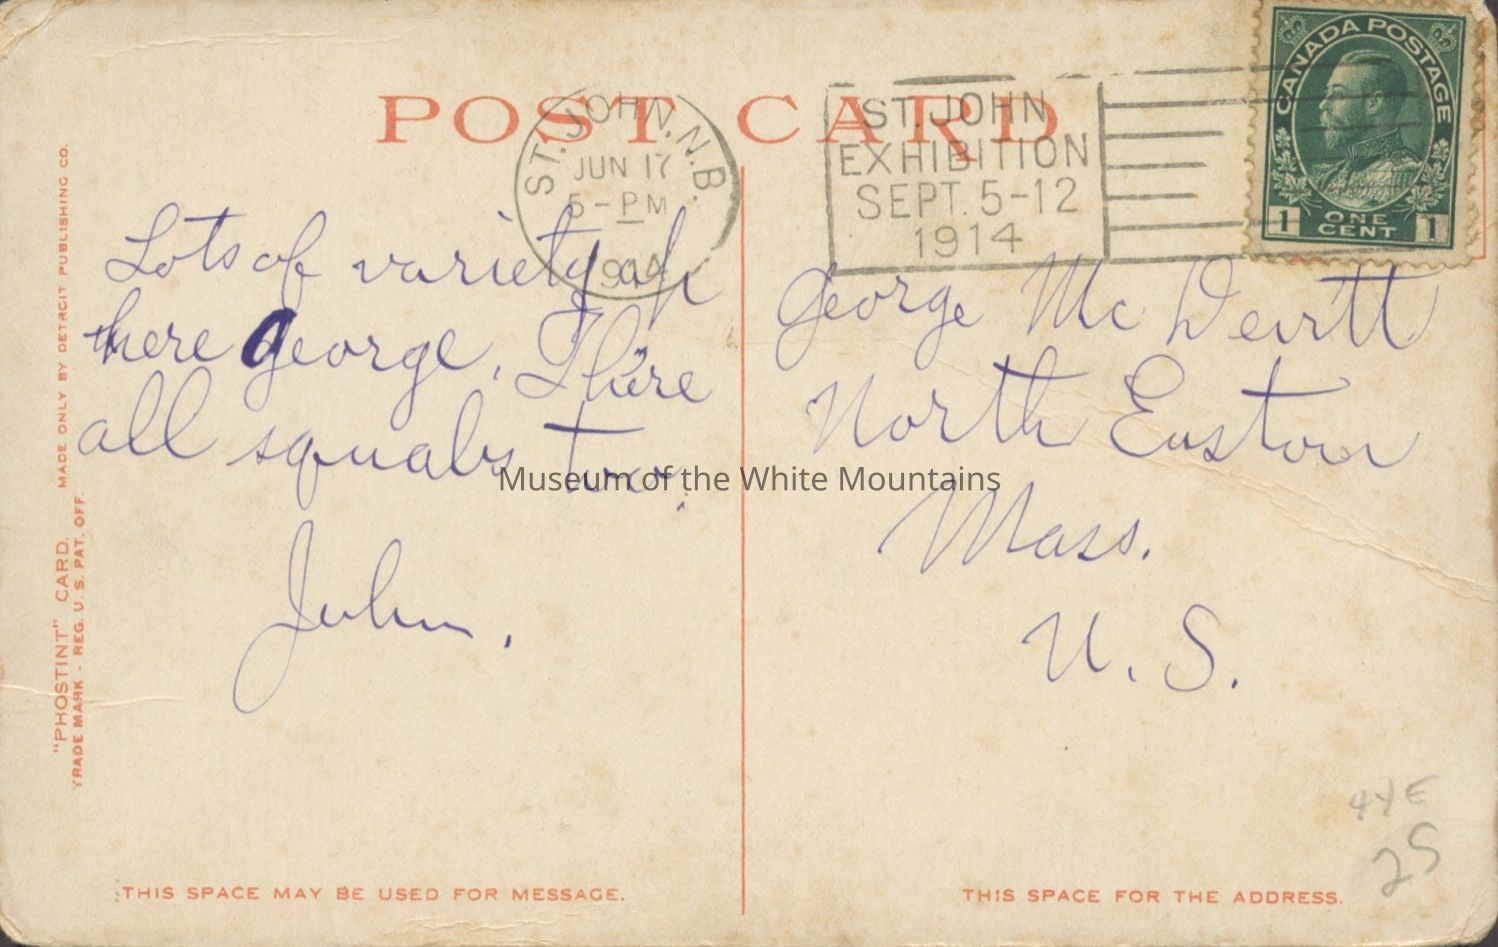 POST CARD
ST. JOHN, N.B.
JUN 17
5-PM
1914
ST. JOHN
EXHIBITION
SEPT. 5-12
1914
CANADA POSTAGE
1 ONE CENT 1
Lots of variety up
here George. There
all squabs too.
John.
George McDevitt
North Easton
Mass.
U. S.
Museum of the White Mountains
"PHOSTINT" CARD. MADE ONLY BY DETROIT PUBLISHING CO.
TRADE MARK - REG. U. S. PAT. OFF.
44E
25
THIS SPACE MAY BE USED FOR MESSAGE.
THIS SPACE FOR THE ADDRESS.